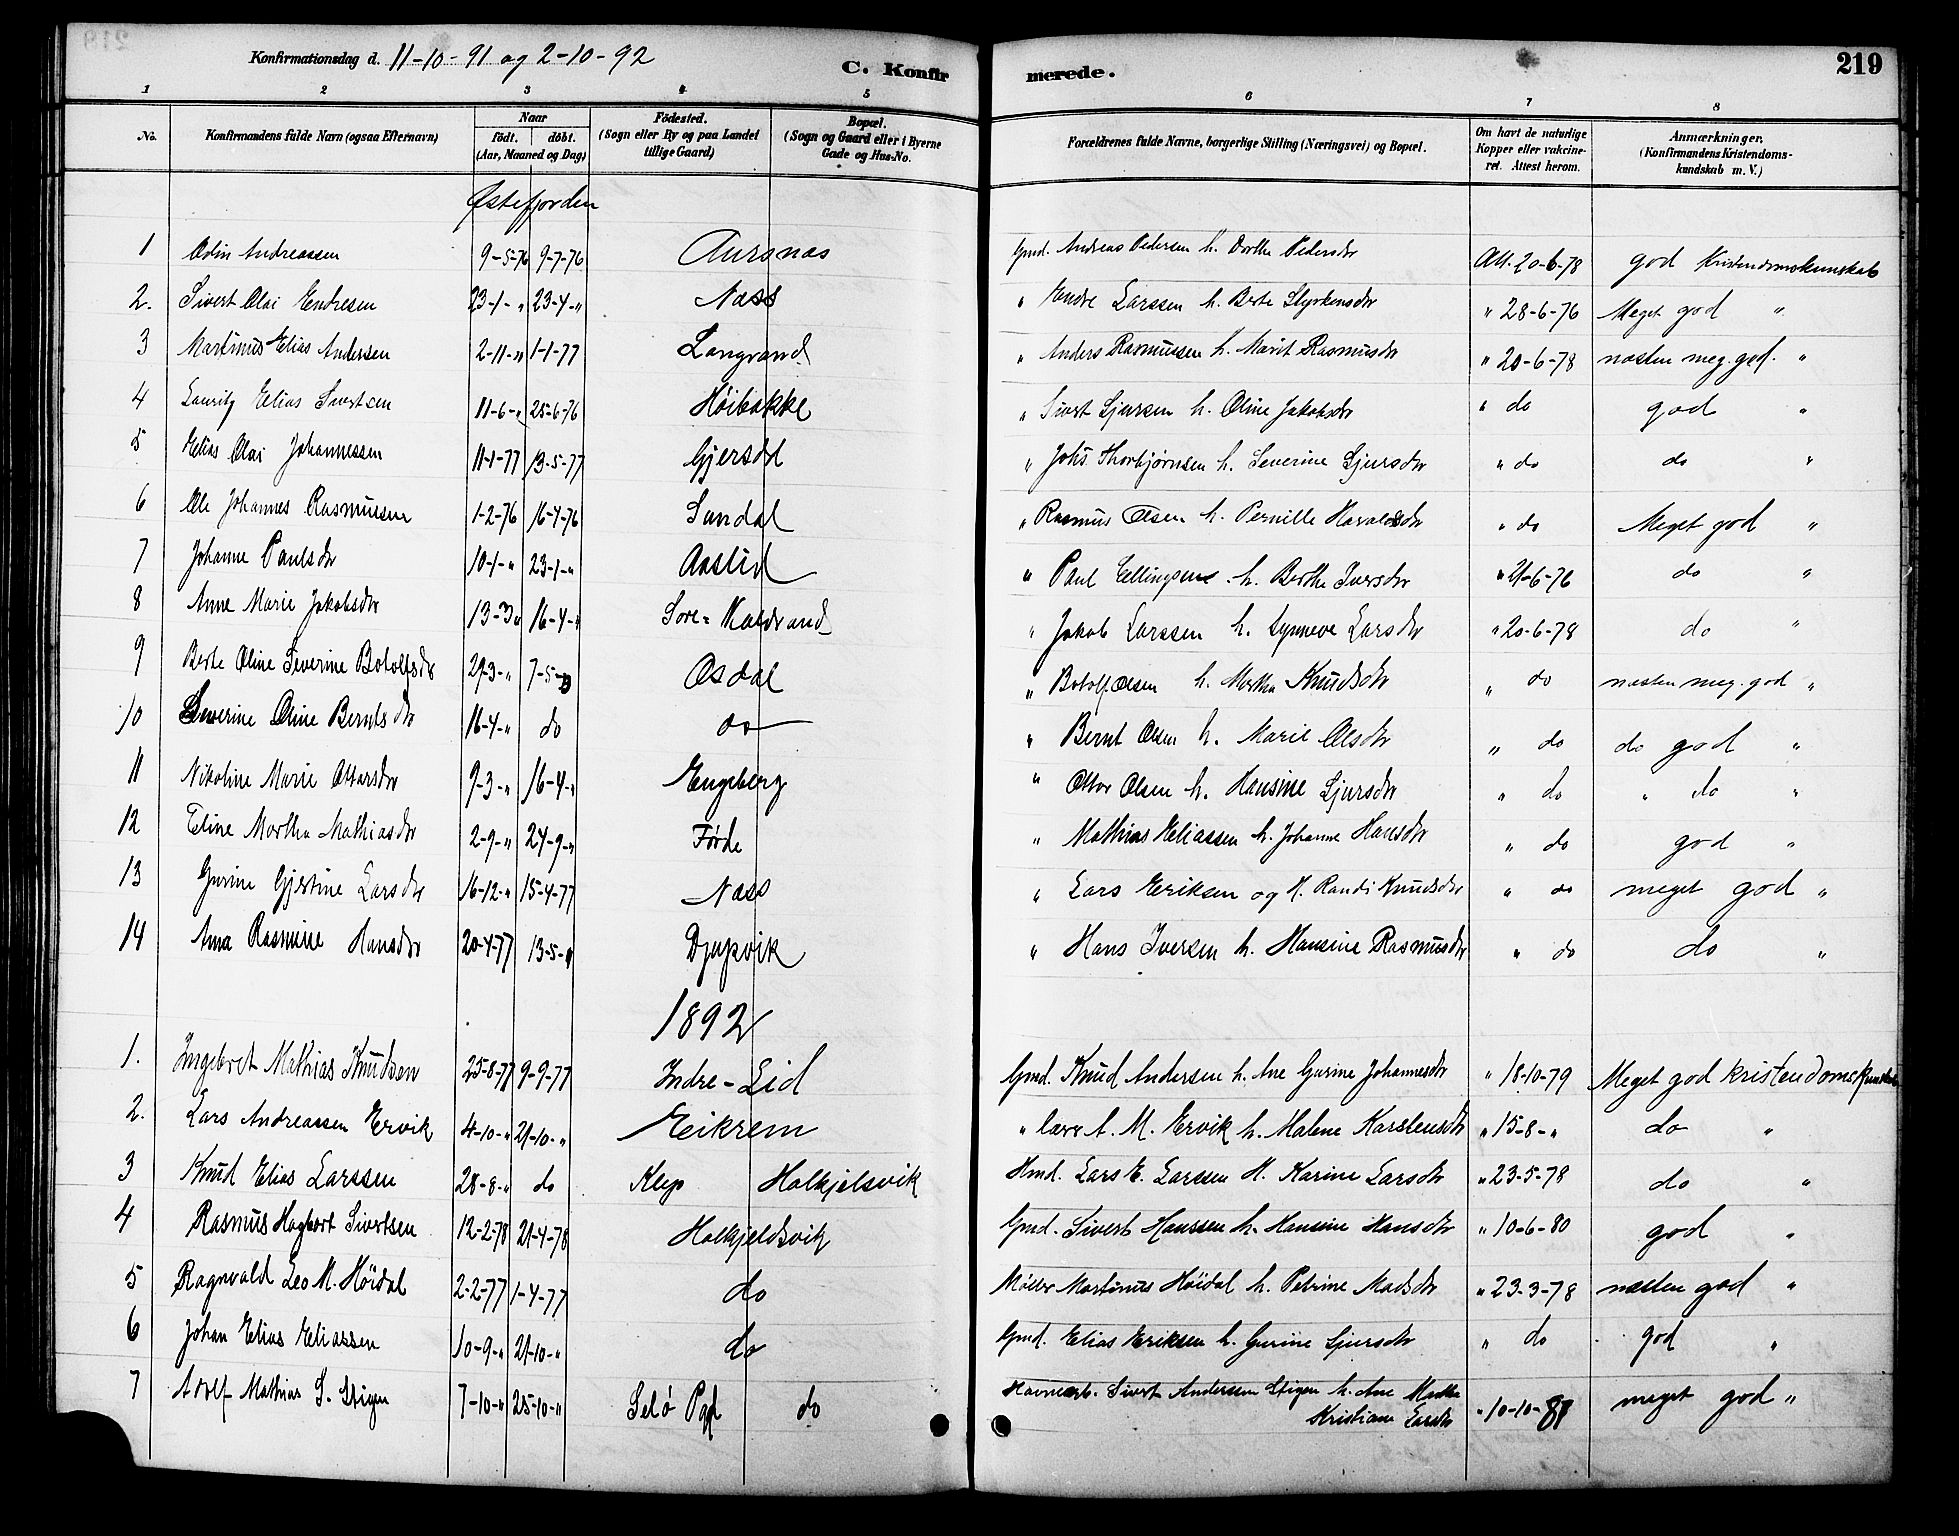 Konfirmationsdag d. 11-10-91 og 2-10-92 C. Konfirmerede. 219
1 2 3 4 5 6 7 8
No. Konfirmandens fulde Navn (ogsaa Efternavn) Naar født. døbt. (Aar, Maaned og Dag) Fødested. (Sogn eller By og paa Landet tillige Gaard) Bopæl. (Sogn og Gaard eller i Byerne Gade og Hus-No. Forældrenes fulde Navne, borgerlige Stilling (Næringsvei) og Bopæl. Om havt de naturlige Kopper eller vakcineret. Attest herom. Anmærkninger. (Konfirmandens Kristendomskundskab m. V.)
Østefjorden
1 Odin Andreassen 9-5-76 9-7-76 Aursnæs Gmd. Andreas Pedersen h. Dorthe Pedersdr Att. 20-6-78 god Kristendomskunskab
2. Sivert Olai Endresen 23-1-" 23-4-" Næss " Endre Larssen h. Berte Styrkensdr " 28-6-76 Meget god "
3 Martinus Elias Andersen 2-11-" 1-1-77 Langvand " Anders Rasmussen h. Marit Rasmusdr " 20-6-78 næsten meg. god. "
4 Lauritz Elias Sivertsen 11-6-" 25-6-76 Høibakke " Sivert Sjursen h. Oline Jakobsdr " do god "
5 Elias Olai Johannessen 11-1-77 13-5-77 Gjersdal " Johs. Thorbjørnsen h. Severine Sjursdr " do do "
6 Ole Johannes Rasmussen 1-2-76 16-4-76 Sundal " Rasmus Olsen h. Pernille Haraldsdr " do Meget god "
7 Johanne Paulsdr 10-1-" 23-1-" Aaslid " Paul Ellingsen h. Berthe Iversdr " 21-6-76 do "
8 Anne Marie Jakobsdr 13-3-" 16-4-" Sore-Kaldvand " Jakob Larssen h. Synneve Larsdr " 20-6-78 do "
9 Berte Oline Severine Botolfsdr 29-3-" 7-5-" Osdal " Botolf Olsen h. Martha Knudsdr " do næsten meg. god "
10 Severine Oline Berntsdr 16-4-" do do " Bernt Olsen h. Marie Olsdr " do do god "
11 Nikoline Marie Ottarsdr 9-3-" 16-4-" Engeberg " Ottar Olsen h. Hansine Sjursdr " do " do "
12 Eline Martha Mathiasdr 2-9-" 24-9-" Førde " Mathias Eliassen h. Johanne Hansdr " do god "
13 Gurine Gjertine Larsdr 16-12-" 15-4-77 Næss " Lars Eriksen og H. Randi Knudsdr " do meget god "
14 Anna Rasmine Hansdr 20-4-77 13-5-" Djupvik " Hans Iversen h. Hansine Rasmusdr " do do "
1892
1. Ingebret Mathias Knudsen 25-8-77 9-9-77 Indre-Eid Gmd. Knud Andersen h. Ane Gurine Johannesdr " 18-10-79 Meget god kristendomskunskab
2. Lars Andreassen Ervik 4-10-" 21-10-" Eikrem " A. M. Ervik h. Malene Karstensdr " 15-8-" do "
3 Knud Elias Larssen 28-8-" do Klep Holkjelsvik Hmd. Lars E. Larssen H. Karine Larsdr " 23-5-78 do "
4 Rasmus Hagbart Sivertsen 12-2-78 21-4-78 Holkjeldsvik Gmd. Sivert Hanssen h. Hansine Hansdr " 10-6-80 god "
5 Ragnvald Leo M. Høidal 2-2-77 1-4-77 do Møller Martinus Høidal h. Petrine Madsdr " 23-3-78 næsten god "
6 Johan Elias Eliassen 10-9-" 21-10-" do Gmd. Elias Eriksen h. Gurine Sjursdr " do god "
7 Adolf Mathias S. Stigen 7-10-" 25-10-" Selø Pgd do Sivert Andersen Stigen h. Ane Martha
Kristiane Larsdr " 10-10-81 meget god "